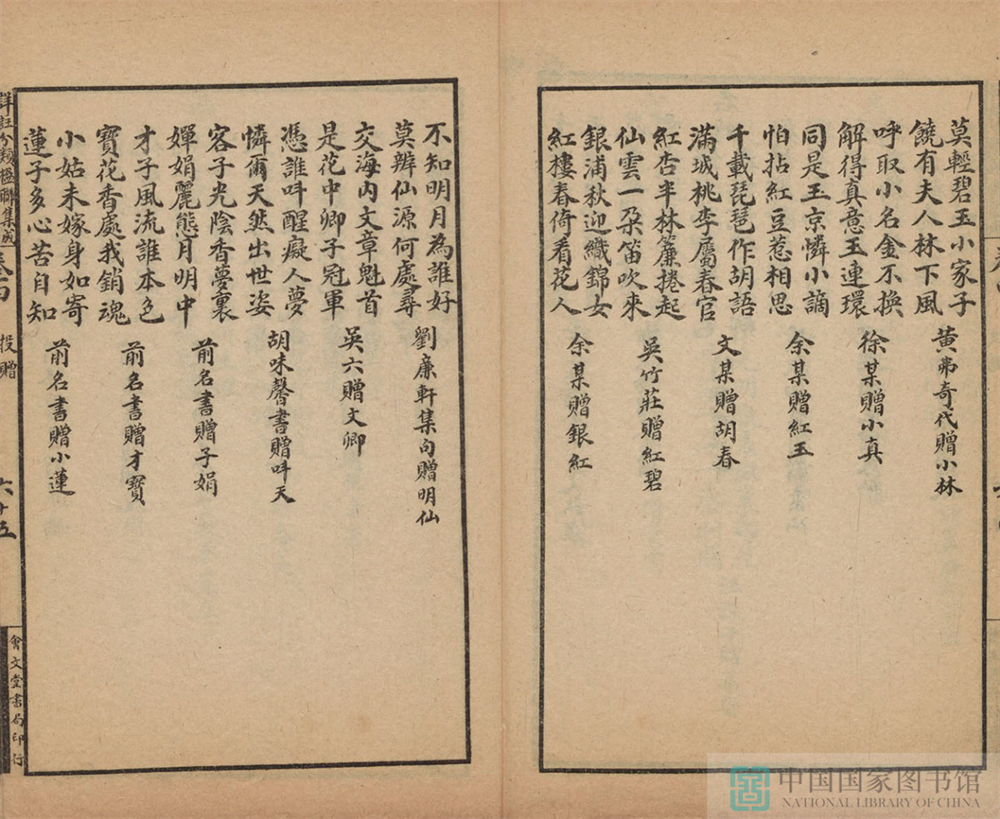 莫輕碧玉小家子
饒有夫人林下風
黃弗奇代贈小林
呼取小名金不換
解得真意玉連環
徐某贈小真
同是玉京憐小謫
怕拈紅豆惹相思
余某贈紅玉
千載琵琶作胡語
滿城桃李屬春官
文某贈胡春
紅杏半林簾捲起
仙雲一朵笛吹來
吳竹莊贈紅碧
銀浦秋迎織錦女
紅樓春倚看花人
余某贈銀紅
不知明月為誰好
莫辨仙源何處尋
劉廉軒集句贈明仙
交海內文章魁首
是花中卿子冠軍
吳六贈文卿
憑誰呌醒癡人夢
憐爾天然出世姿
胡味馨書贈呌天
客子光陰香夢裏
嬋娟麗態月明中
前名書贈子娟
才子風流誰本色
寶花香處我銷魂
前名書贈才寶
小姑未嫁身如寄
蓮子多心苦自知
前名書贈小蓮
詳註分類楹聯集成
投贈
六十五
會文堂書局印行
中国国家图书馆
NATIONAL LIBRARY OF CHINA